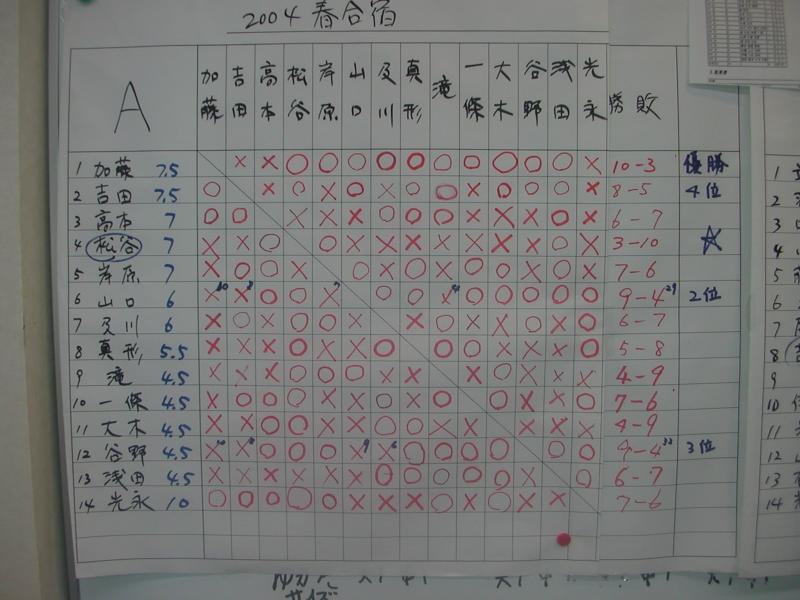 2004 春合宿
A 加藤 吉田 高本 松谷 岸原 山口 及川 真形 滝 一條 大木 谷野 浅田 光永 勝敗
1 加藤 7.5 × × ○ ○ ○ ○ ○ ○ ○ ○ ○ ○ ○ × 10-3 優勝
2 吉田 7.5 ○ × ○ × ○ × ○ ○ × ○ ○ ○ × 8-5 4位
3 高本 7 ○ ○ × × × ○ ○ ○ × × × ○ × 6-7
4 松谷 7 × × ○ ○ × × × × × × × ○ × 3-10 ☆
5 岸原 7 × ○ ○ × ○ × ○ × ○ ○ × ○ × 7-6
6 山口 6 × 10 × 8 ○ ○ × 7 ○ ○ × ○ ○ ○ ○ ○ 9-4 29 2位
7 及川 6 × ○ × ○ ○ × × ○ × × ○ × ○ 6-7
8 真形 5.5 × × × ○ × × ○ ○ ○ × × × ○ 5-8
9 滝 4.5 × × × ○ ○ ○ × × × ○ × × × 4-9
10 一條 4.5 × ○ ○ ○ × × ○ × ○ ○ × × ○ 7-6
11 大木 4.5 × × ○ ○ × × ○ ○ × × × × × 4-9
12 谷野 4.5 × × 8 ○ ○ ○ × 9 × 6 ○ ○ ○ ○ ○ ○ 9-4 3位
13 浅田 4.5 × × × × × × ○ ○ ○ ○ ○ × ○ 6-7
14 光永 10 ○ ○ ○ ○ ○ × × × ○ × ○ × × 7-6
1
2
3
4
5
6
7
8
9
10
11
12
13
14